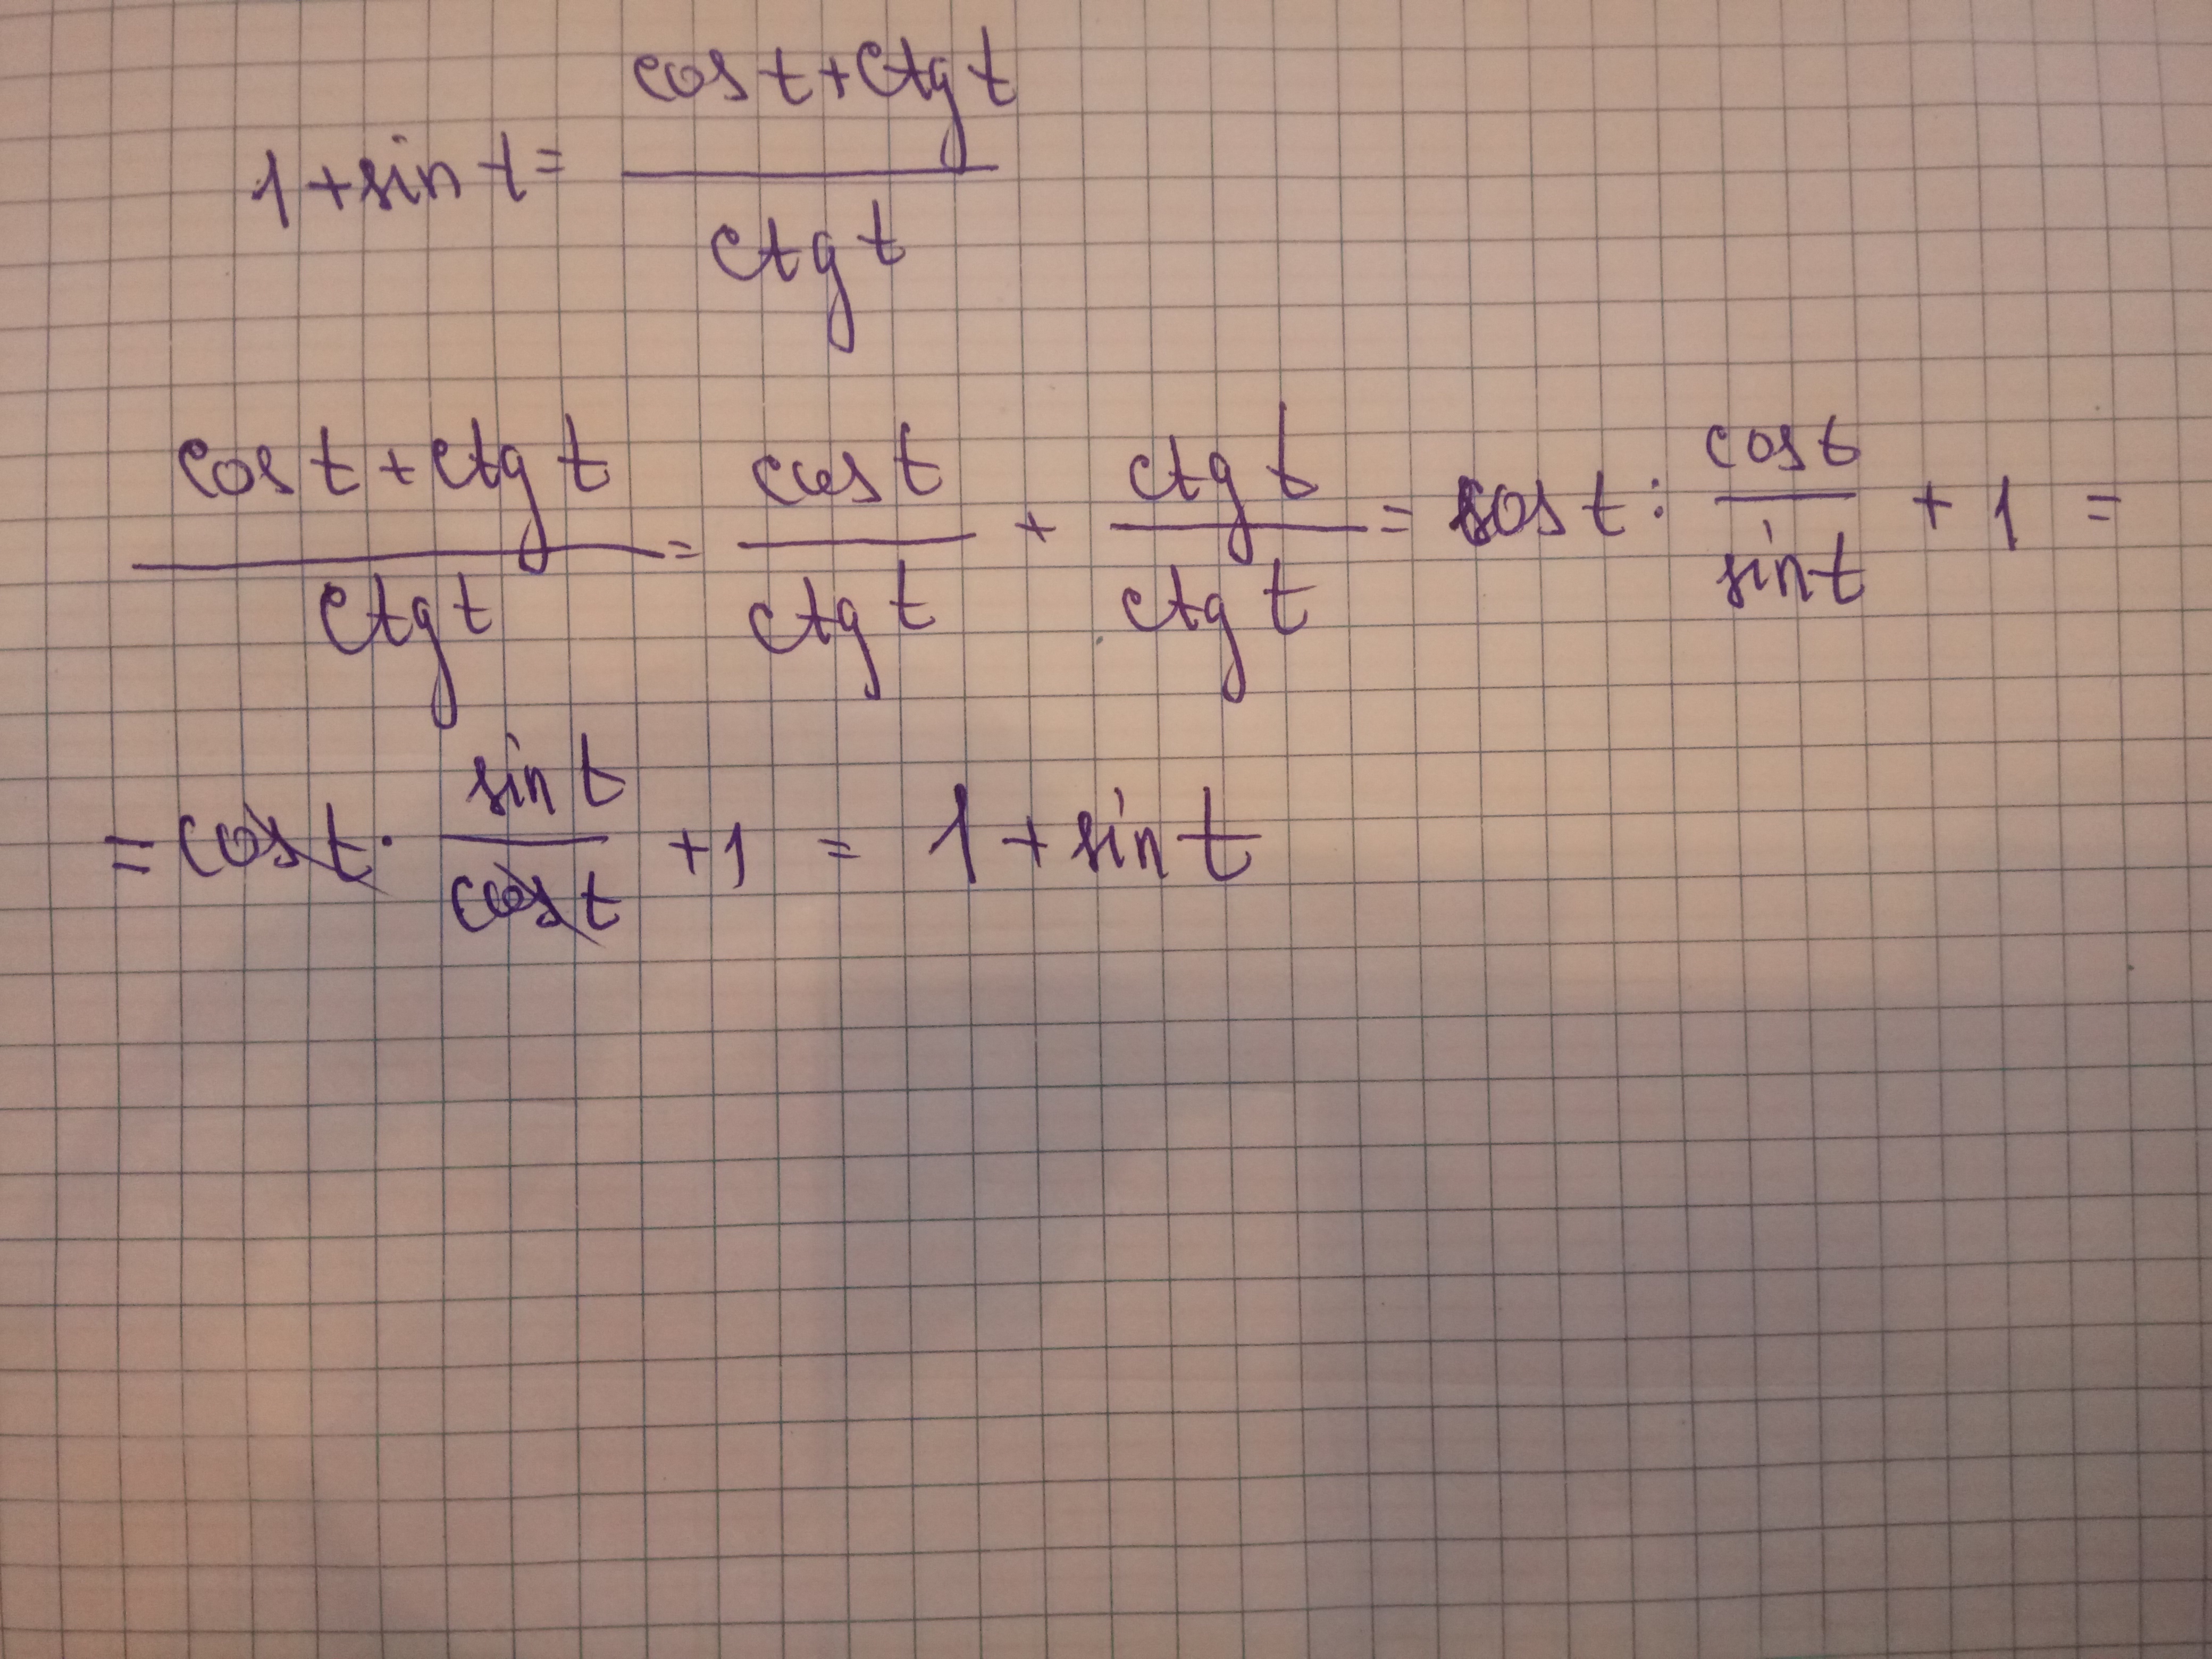 1 + sin t = (cos t + ctg t) / (ctg t)
(cos t + ctg t) / (ctg t) = (cos t) / (ctg t) + (ctg t) / (ctg t) = cos t : (cos t) / (sin t) + 1 =
= cos t · (sin t) / (cos t) + 1 = 1 + sin t